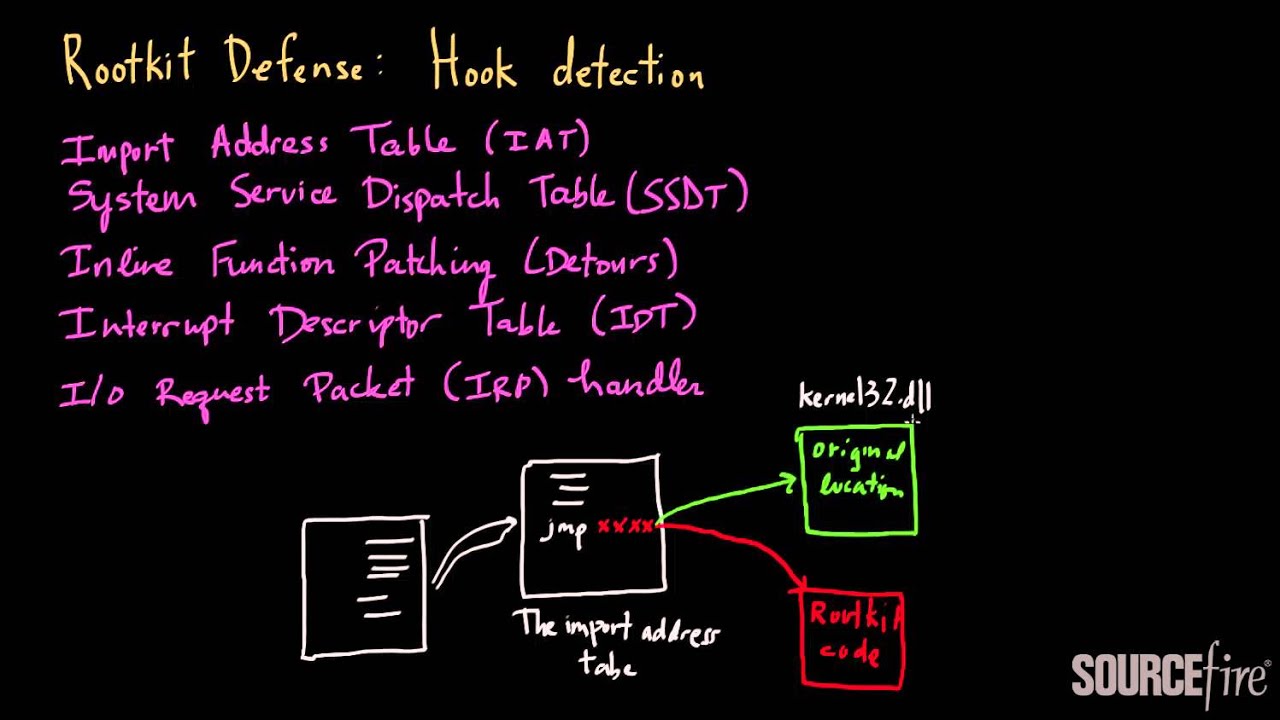 Rootkit Defense: Hook detection
Import Address Table (IAT)
System Service Dispatch Table (SSDT)
Inline Function Patching (Detours)
Interrupt Descriptor Table (IDT)
I/O Request Packet (IRP) handler
kernel32.dll
original
location
jmp xxxx
The import address
tabe
Rootkit
code
SOURCEfire®